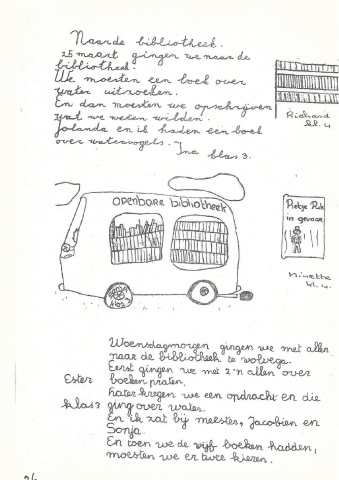 Naar de bibliotheek.
25 maart gingen we naar de
bibliotheek.
We moesten een boek over
water uitzoeken.
En dan moesten we opschrijven
wat we weten wilden.
Jolanda en ik hadden een boek
over watervogels.
Ina klas 3.
Richard
kl. 4
openbare bibliotheek
Pietje Puk
in gevaar
klas 3
Minette
kl. 4.
Woensdagmorgen gingen we met allen
naar de bibliotheek te wolvega.
Eerst gingen we met z'n allen over
boeken praten.
Ester
Later kregen we een opdracht en die
klas 3 ging over water.
En ik zat bij meester, Jacobien en
Sonja.
En toen we de vijf boeken hadden,
moesten we er twee kiezen.